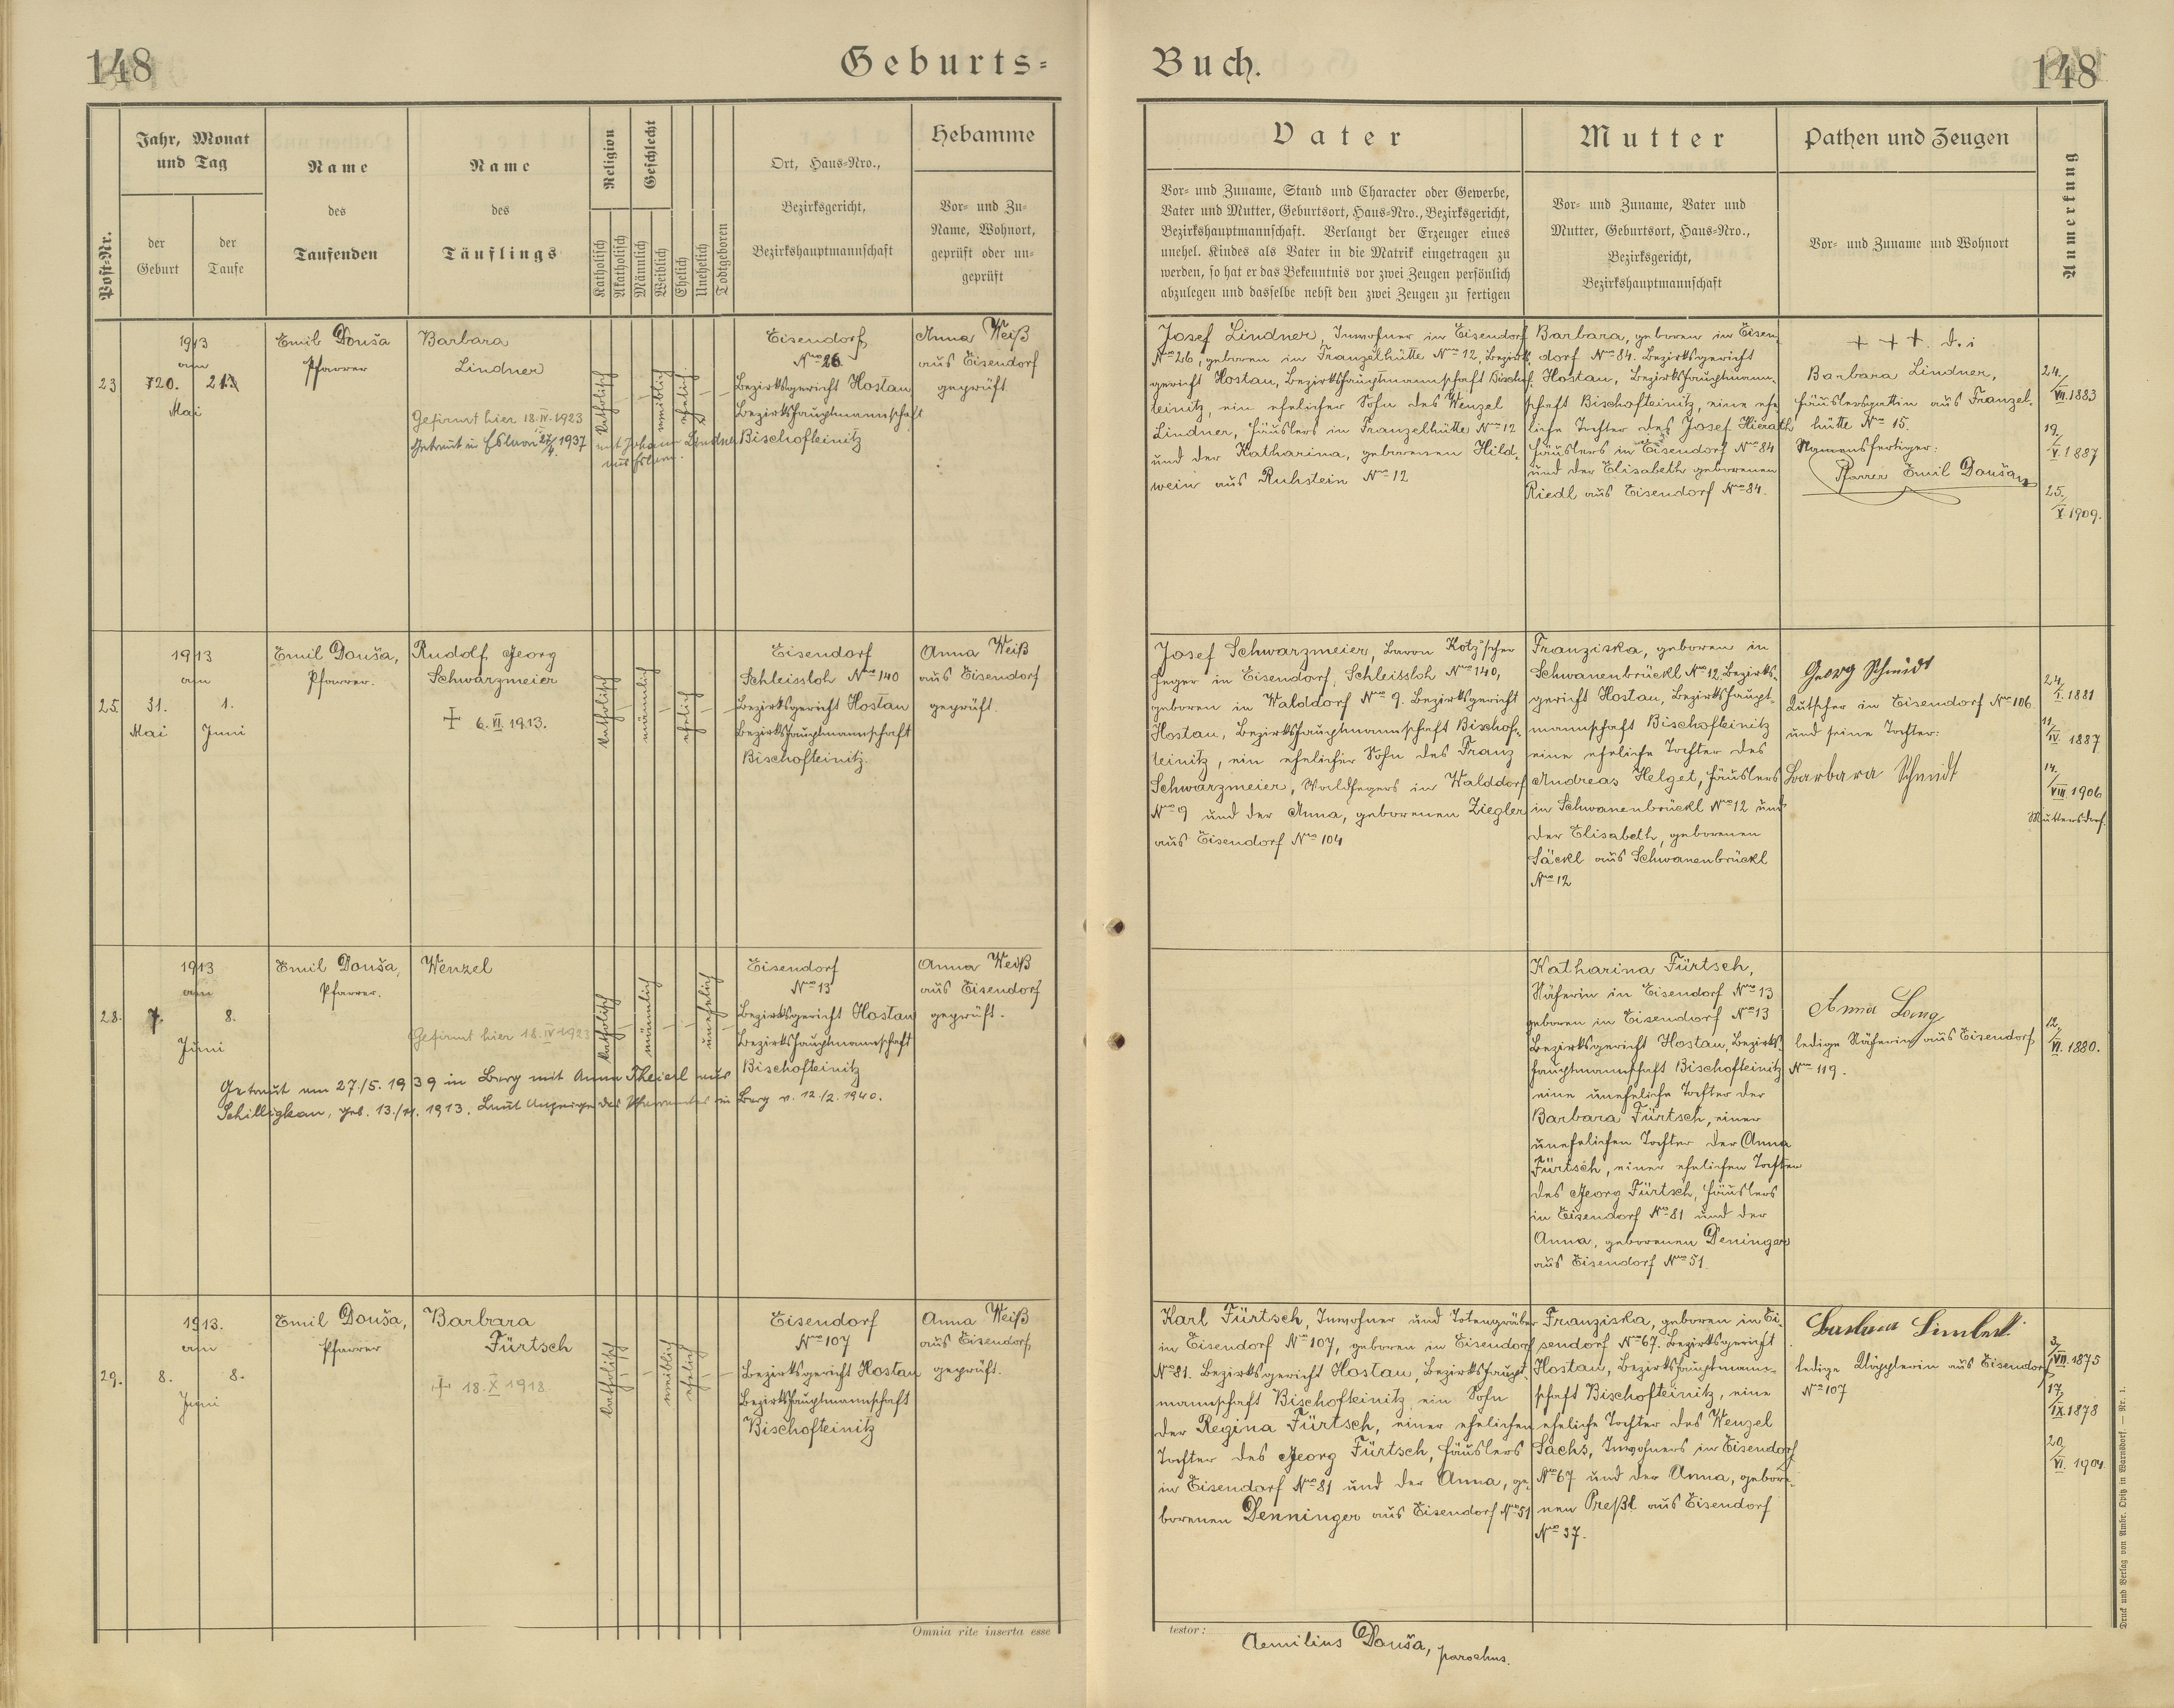 148
Geburts=
Buch.
148
Post-Nr.
Jahr, Monat
und Tag
der
Geburt
der
Taufe
Name
des
Taufenden
Name
des
Täuflings
Religion
Katholisch
Akatholisch
Geschlecht
Männlich
Weiblich
Ehelich
Unehelich
Todtgeboren
Ort, Haus=Nro.,
Bezirksgericht,
Bezirkshauptmannschaft
Hebamme
Vor= und Zu=
Name, Wohnort,
geprüft oder un=
geprüft
Vater
Vor= und Zuname, Stand und Character oder Gewerbe,
Vater und Mutter, Geburtsort, Haus=Nro., Bezirksgericht,
Bezirkshauptmannschaft. Verlangt der Erzeuger eines
unehel. Kindes als Vater in die Matrik eingetragen zu
werden, so hat er das Bekenntnis vor zwei Zeugen persönlich
abzulegen und dasselbe nebst den zwei Zeugen zu fertigen
Mutter
Vor= und Zuname, Vater und
Mutter, Geburtsort, Haus=Nro.,
Bezirksgericht,
Bezirkshauptmannschaft
Pathen und Zeugen
Vor= und Zuname und Wohnort
Anmerkung
23
1913
am
20.
Mai
Emil Douša
Pfarrer
Barbara
Lindner
Gefirmt hier 18.IV.1923
Getraut in 1937 mit Johann Lindner
aus
katholisch
weiblich
ehelich
Eisendorf
Nro 26
Bezirksgericht Hostau
Bezirkshauptmannschaft
Bischofteinitz
Anna Weiß
aus Eisendorf
geprüft
Josef Lindner, Inwohner in Eisendorf
Nro 26, geboren in Franzelhütte Nro 12, Bezirks=
gericht Hostau, Bezirkshauptmannschaft Bischof=
teinitz, ein ehelicher Sohn des Wenzel
Lindner, Häuslers in Franzelhütte Nro 12
und der Katharina, geborenen Hild=
wein aus Ruhstein Nro 12
Barbara, geboren in Eisen=
dorf Nro 84. Bezirksgericht
Hostau, Bezirkshauptmann=
schaft Bischofteinitz, eine ehe=
liche Tochter des Josef Hierath
Häuslers in Eisendorf Nro 84
und der Elisabeth geborenen
Riedl aus Eisendorf Nro 84.
+ + + d. i
Barbara Lindner,
Häuslersgattin aus Franzel=
hütte Nro 15.
Namensfertiger:
Pfarrer Emil Douša
24./VII.1883
19./V.1887
25./X.1909.
25.
1913
am
31.
Mai
1.
Juni
Emil Douša,
Pfarrer.
Rudolf Georg
Schwarzmeier
+ 6.VI.1913.
katholisch
männlich
ehelich
Eisendorf
Schleissloh Nro 140
Bezirksgericht Hostau
Bezirkshauptmannschaft
Bischofteinitz.
Anna Weiß
aus Eisendorf
geprüft.
Josef Schwarzmeier, Baron Kotz'scher
Heger in Eisendorf, Schleissloh Nro 140,
geboren in Walddorf Nro 9. Bezirksgericht
Hostau, Bezirkshauptmannschaft Bischof=
teinitz, ein ehelicher Sohn des Franz
Schwarzmeier, Waldhegers in Walddorf
Nro 9 und der Anna, geborenen Ziegler
aus Eisendorf Nro 104
Franziska, geboren in
Schwanenbrückl Nro 12, Bezirks=
gericht Hostau, Bezirkshaupt=
mannschaft Bischofteinitz
eine eheliche Tochter des
Andreas Helget, Häuslers
in Schwanenbrückl Nro 12 und
der Elisabeth, geborenen
Säckl aus Schwanenbrückl
Nro 12
Georg Schmidt
Kutscher in Eisendorf Nro 106
und seine Tochter:
Barbara Schmidt
24./I.1881
11./IV.1887
14./VIII.1906
Muttersdorf.
28.
1913
am
7.
8.
Juni
Emil Douša,
Pfarrer.
Wenzel
Gefirmt hier 18.IV.1923
Getraut am 27./5.1939 in Berg mit Anna Theierl aus
Schilligkau, geb. 13./11.1913. Laut Anzeige des Pfarramtes in Berg v. 12./2.1940.
katholisch
männlich
unehelich
Eisendorf
Nro 13
Bezirksgericht Hostau
Bezirkshauptmannschaft
Bischofteinitz
Anna Weiß
aus Eisendorf
geprüft.
Katharina Fürtsch,
Näherin in Eisendorf Nro 13
geboren in Eisendorf Nro 13
Bezirksgericht Hostau, Bezirks=
hauptmannschaft Bischofteinitz
eine uneheliche Tochter der
Barbara Fürtsch, einer
unehelichen Tochter der Anna
Fürtsch, einer ehelichen Tochter
des Georg Fürtsch, Häuslers
in Eisendorf Nro 81 und der
Anna, geborenen Deninger
aus Eisendorf Nro 51.
Anna Lang
ledige Näherin aus Eisendorf
Nro 119.
12./VI.1880.
29.
1913.
am
8.
8.
Juni
Emil Douša,
Pfarrer
Barbara
Fürtsch
+ 18.X.1918.
katholisch
weiblich
ehelich
Eisendorf
Nro 107
Bezirksgericht Hostau
Bezirkshauptmannschaft
Bischofteinitz
Anna Weiß
aus Eisendorf,
geprüft.
Karl Fürtsch, Inwohner und Totengräber
in Eisendorf Nro 107, geboren in Eisendorf
Nro 81. Bezirksgericht Hostau, Bezirkshaupt=
mannschaft Bischofteinitz, ein Sohn
der Regina Fürtsch, einer ehelichen
Tochter des Georg Fürtsch, Häuslers
in Eisendorf Nro 81 und der Anna, ge=
borenen Denninger aus Eisendorf Nro 51
Franziska, geboren in Ei=
sendorf Nro 67. Bezirksgericht
Hostau, Bezirkshauptmann=
schaft Bischofteinitz, eine
eheliche Tochter des Wenzel
Sachs, Inwohners in Eisendorf
Nro 67 und der Anna, gebore=
nen Preßl aus Eisendorf
Nro 37.
Barbara
ledige Klöpplerin aus Eisendorf
Nro 107
3./VII.1875
17./IX.1878
20./VI.1901
Omnia rite inserta esse
testor:
Aemilius Douša, parochus.
Druck und Verlag von Ambr. Opitz in Warnsdorf. — Nr. 1.